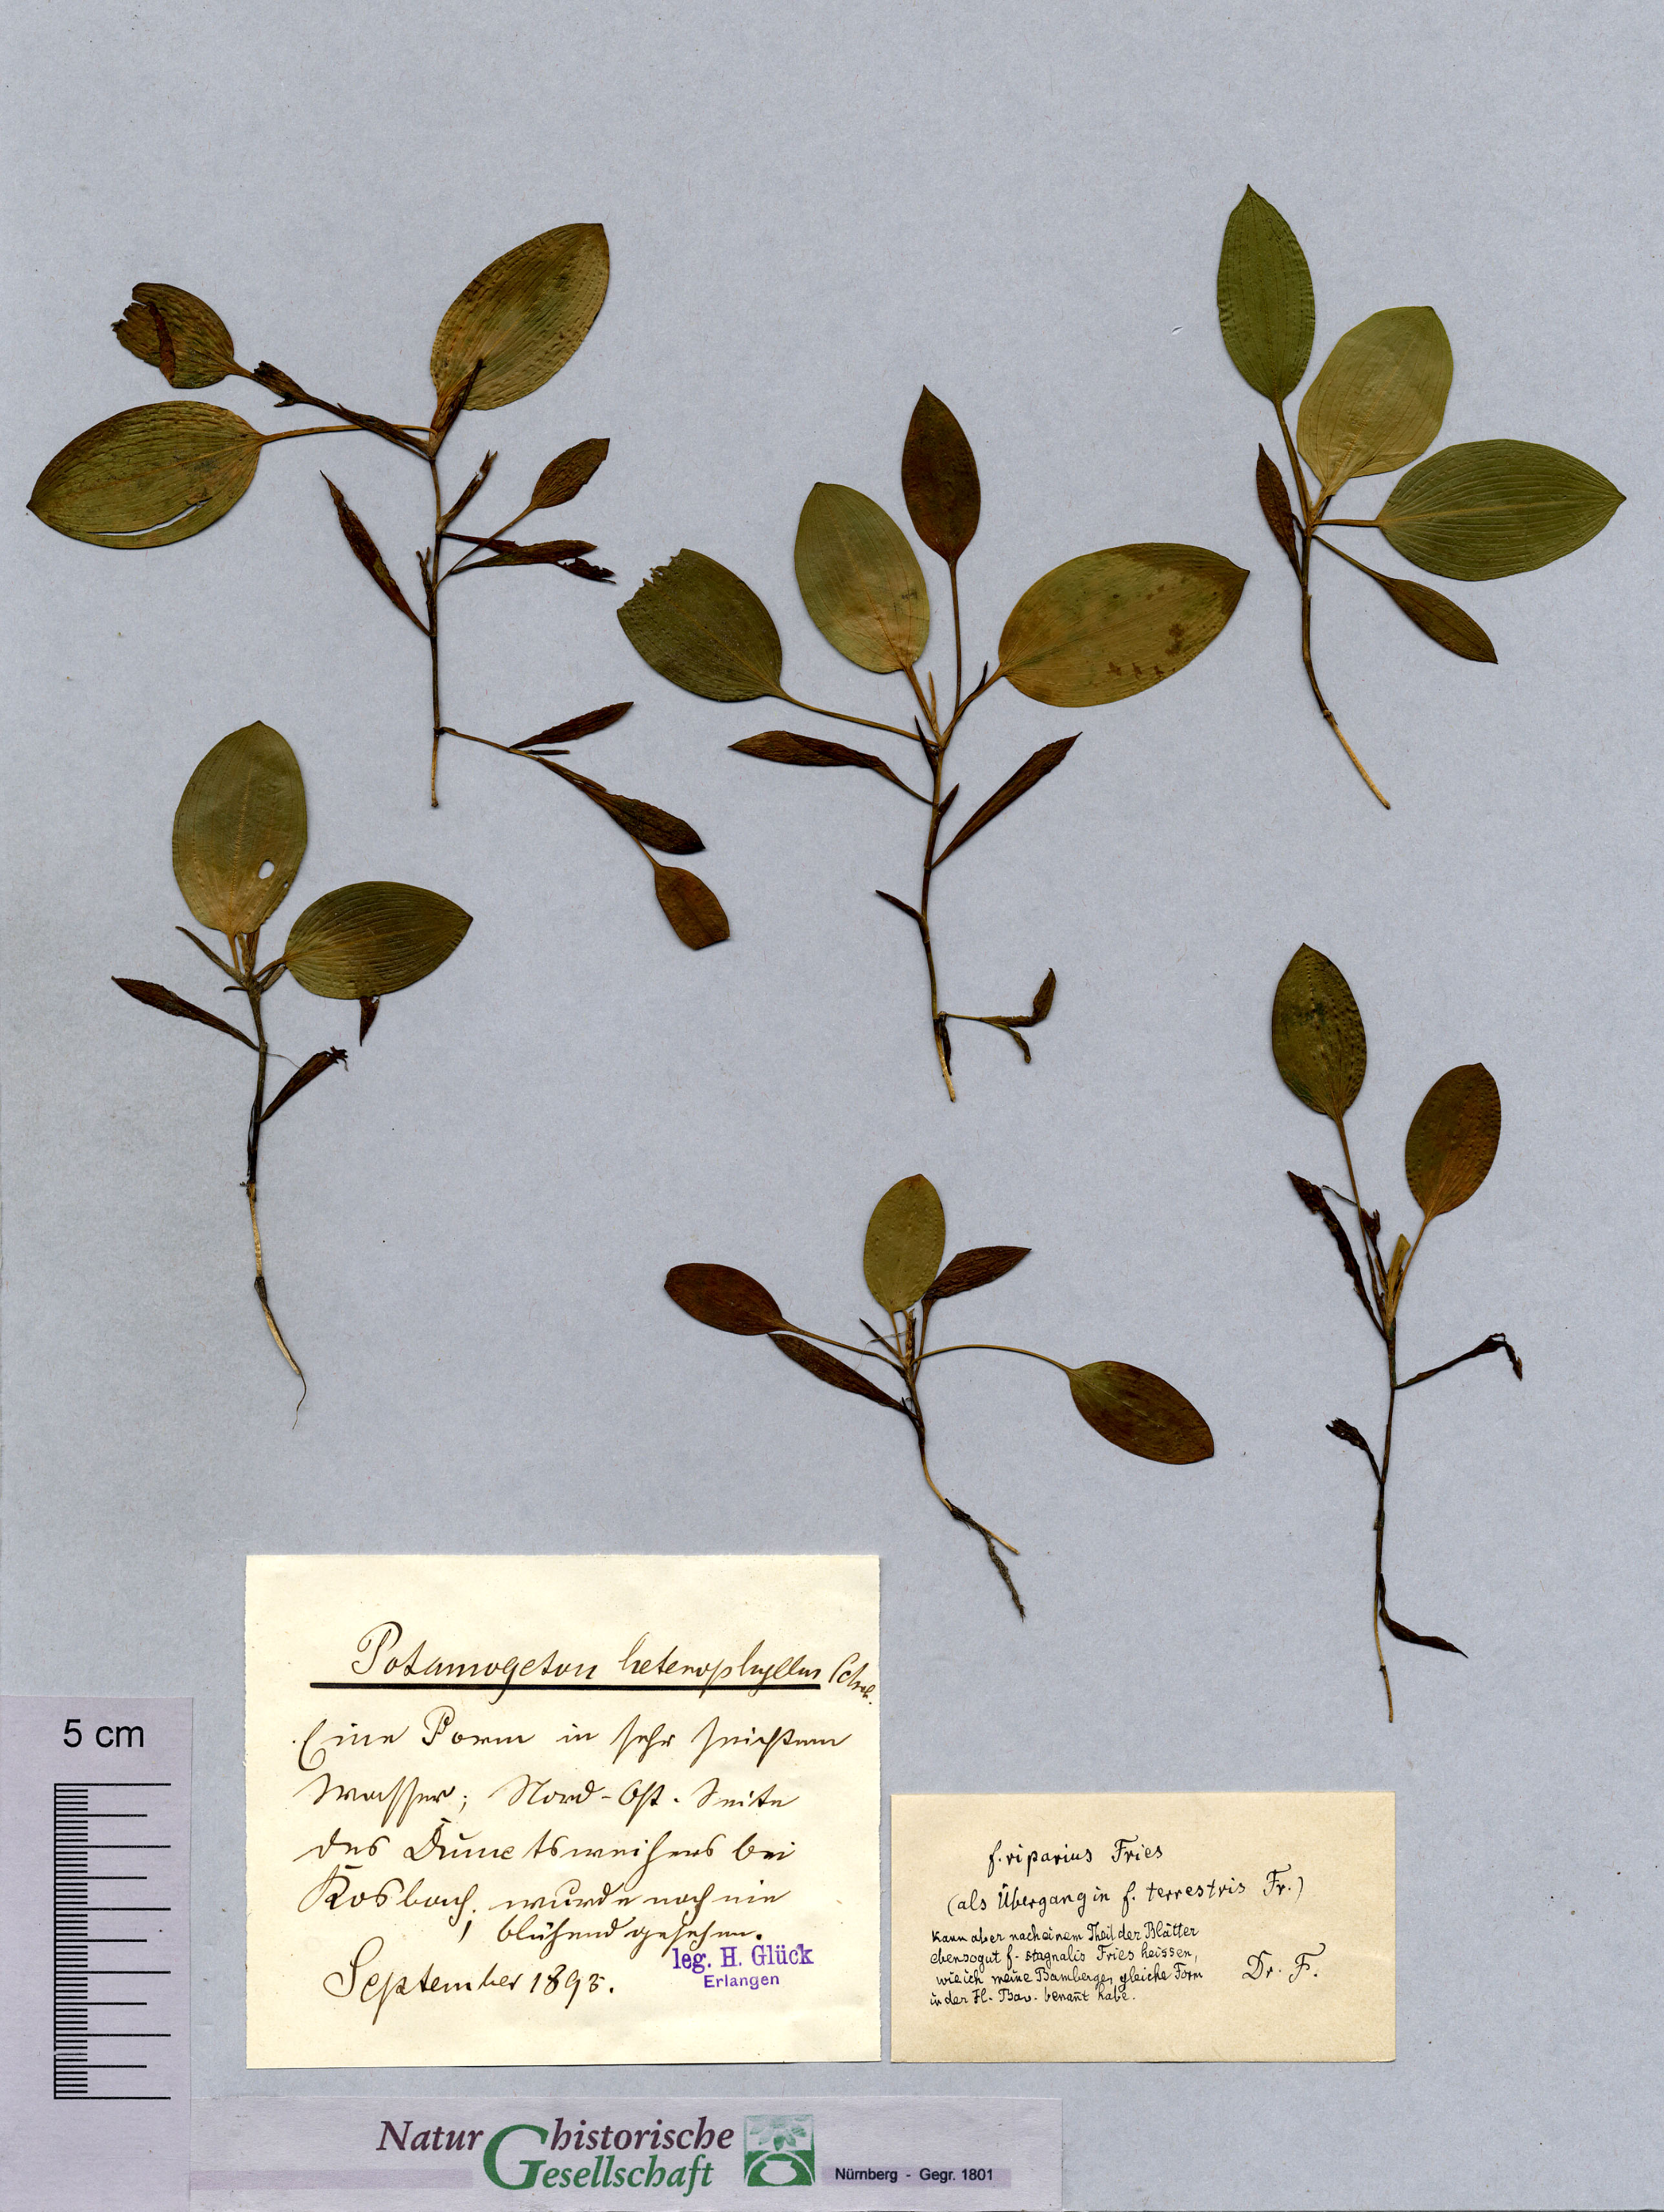 Potamogeton heterophyllus Schreb.
Eine Form in sehr seichtem
Wasser; Nord-Ost-Seite
des bei
Kosbach, wurde noch nie
blühend gesehen.
September 1895.
leg. H. Glück
Erlangen
f. riparius Fries
(als Übergang in f. terrestris Fr.)
Kann aber nach einem Theil der Blätter
ebensogut f. stagnalis Fries heissen,
wie ich meine Bamberger gleiche Form
in der Fl. Bav. benañt habe.
Dr. F.
5 cm
Naturhistorische
Gesellschaft
Nürnberg - Gegr. 1801